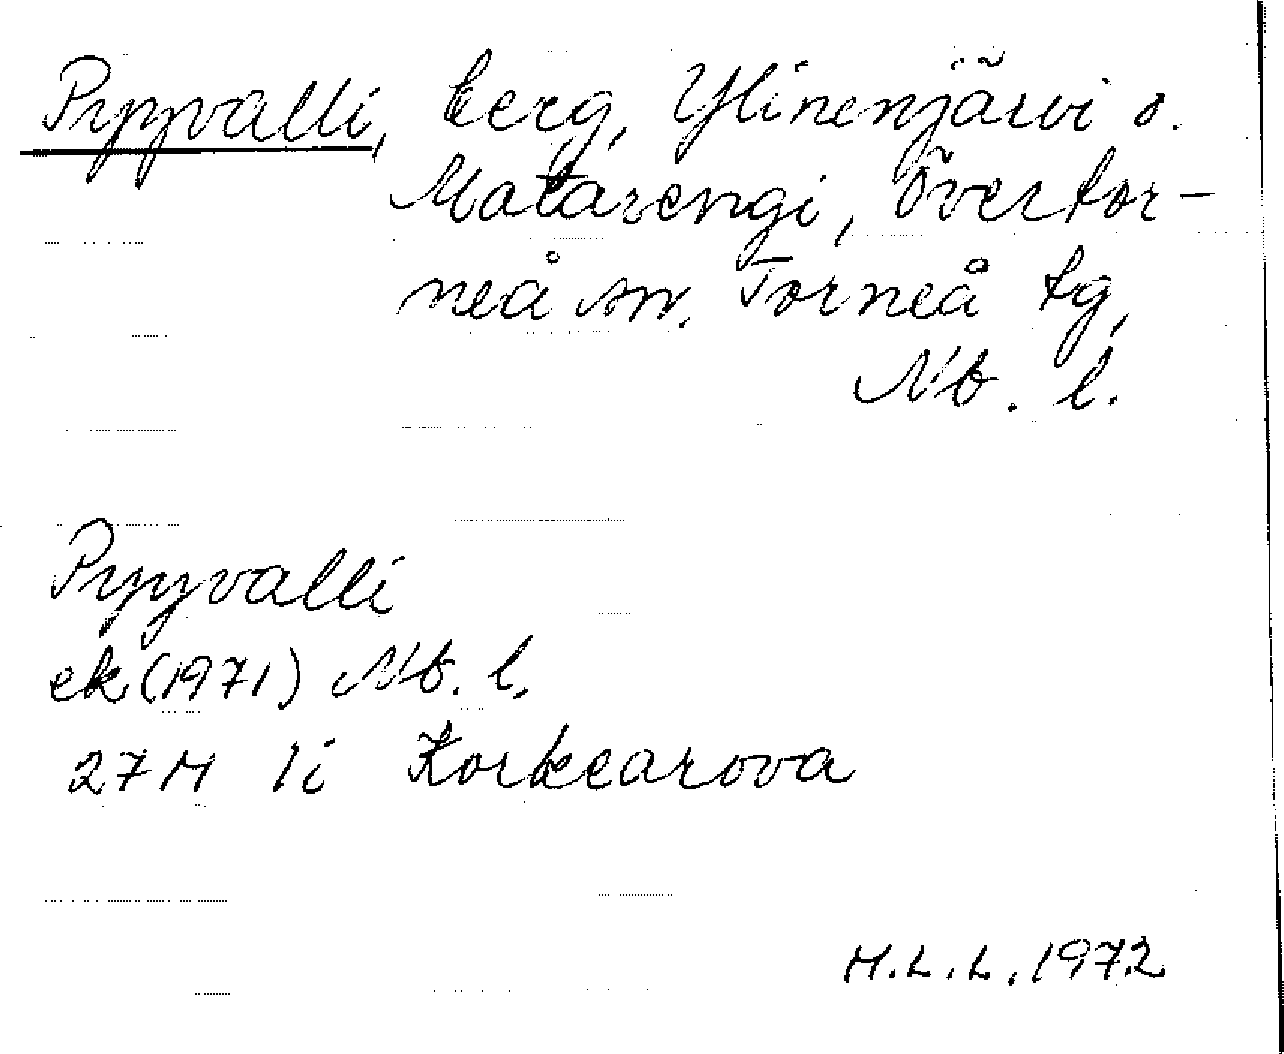 Pyyvalli, berg, Ylinenjärvi o.
Matarengi, Övertor-
neå sn. Torneå tg,
Nb. l.
Pyyvalli
ek (1971) Nb. l.
27M 1i Korkearova
M.L.L. 1972